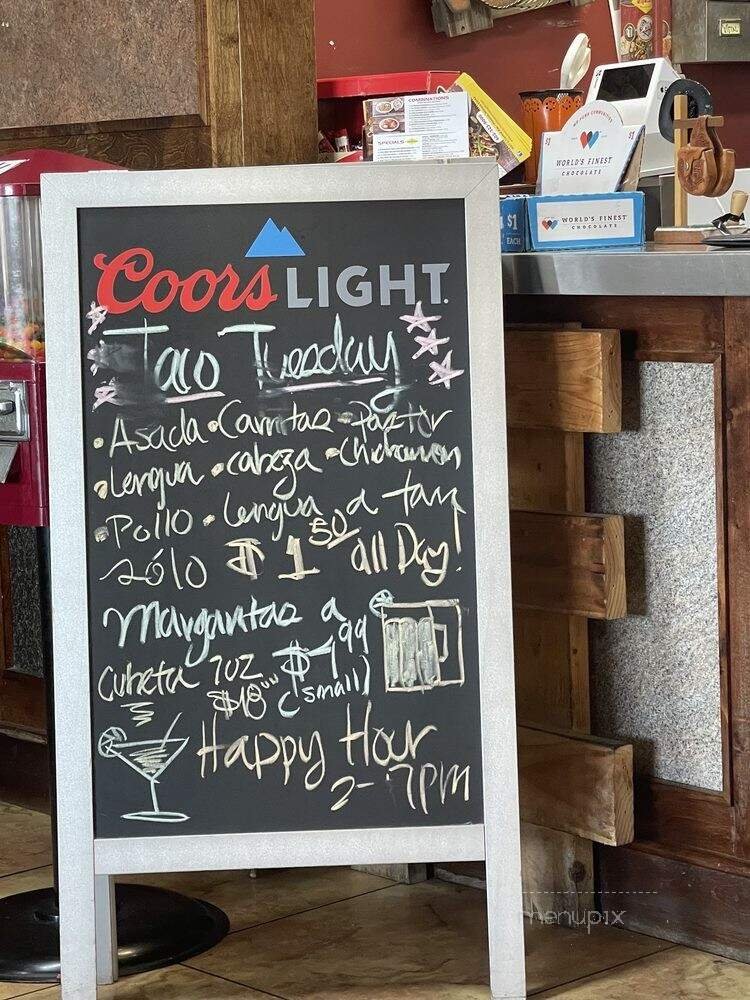 VITAL
COMBINATIONS
SPECIALS
WORLD'S FINEST
CHOCOLATE
$1
WORLD'S FINEST
CHOCOLATE
$1
EACH
Coors LIGHT
Taco Tuesday
• Asada • Carnitas • Pastor
• lengua • cabeza •
• Pollo • Lengua a
sólo $1 50 all Day!
Margaritas a
$1 99
Cubeta 7oz (small)
$18 00
Happy Hour
2-7PM
menupix